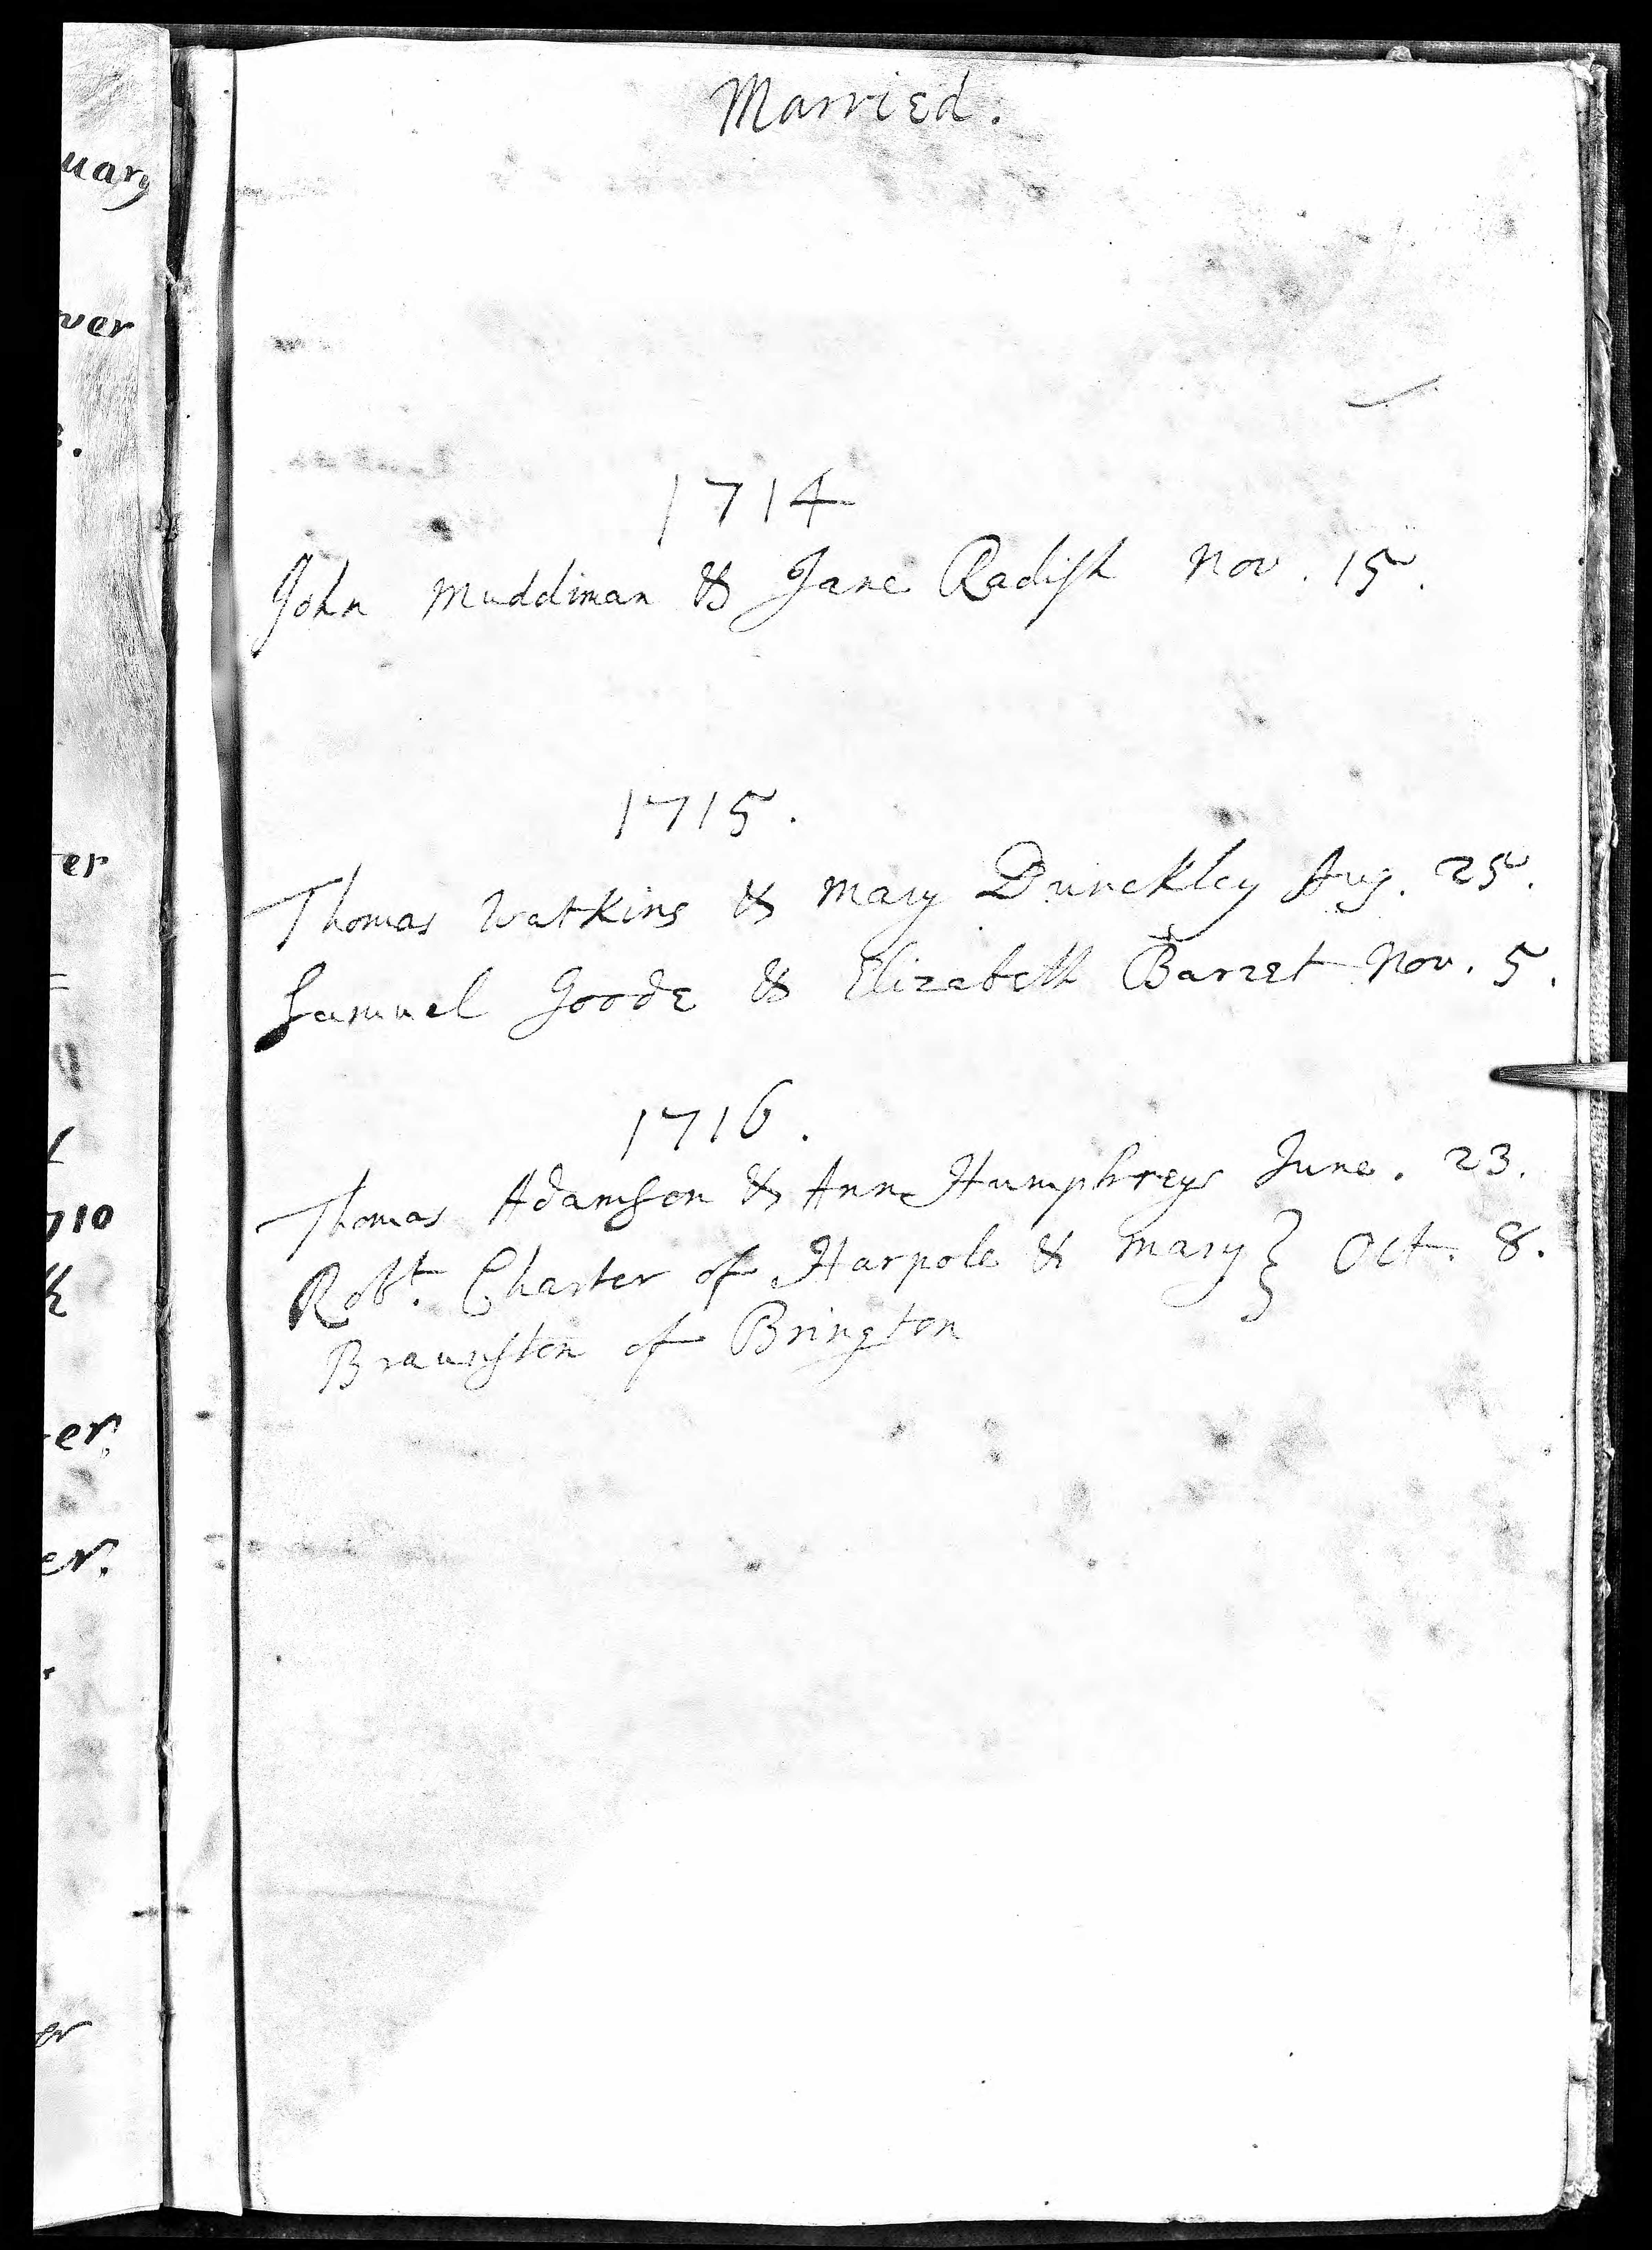 Married.
1714
John Muddiman & Jane Radish Nov. 15.
1715.
Thomas Watkins & Mary Dunckley Aug. 25.
Samuel Goode & Elizabeth Barret Nov. 5.
1716.
Thomas Adamson & Ann Humphreys June. 23.
Robt. Charter of Harpole & Mary } Oct. 8.
Braunston of Brington
uary
ver
er
710
er.
er.